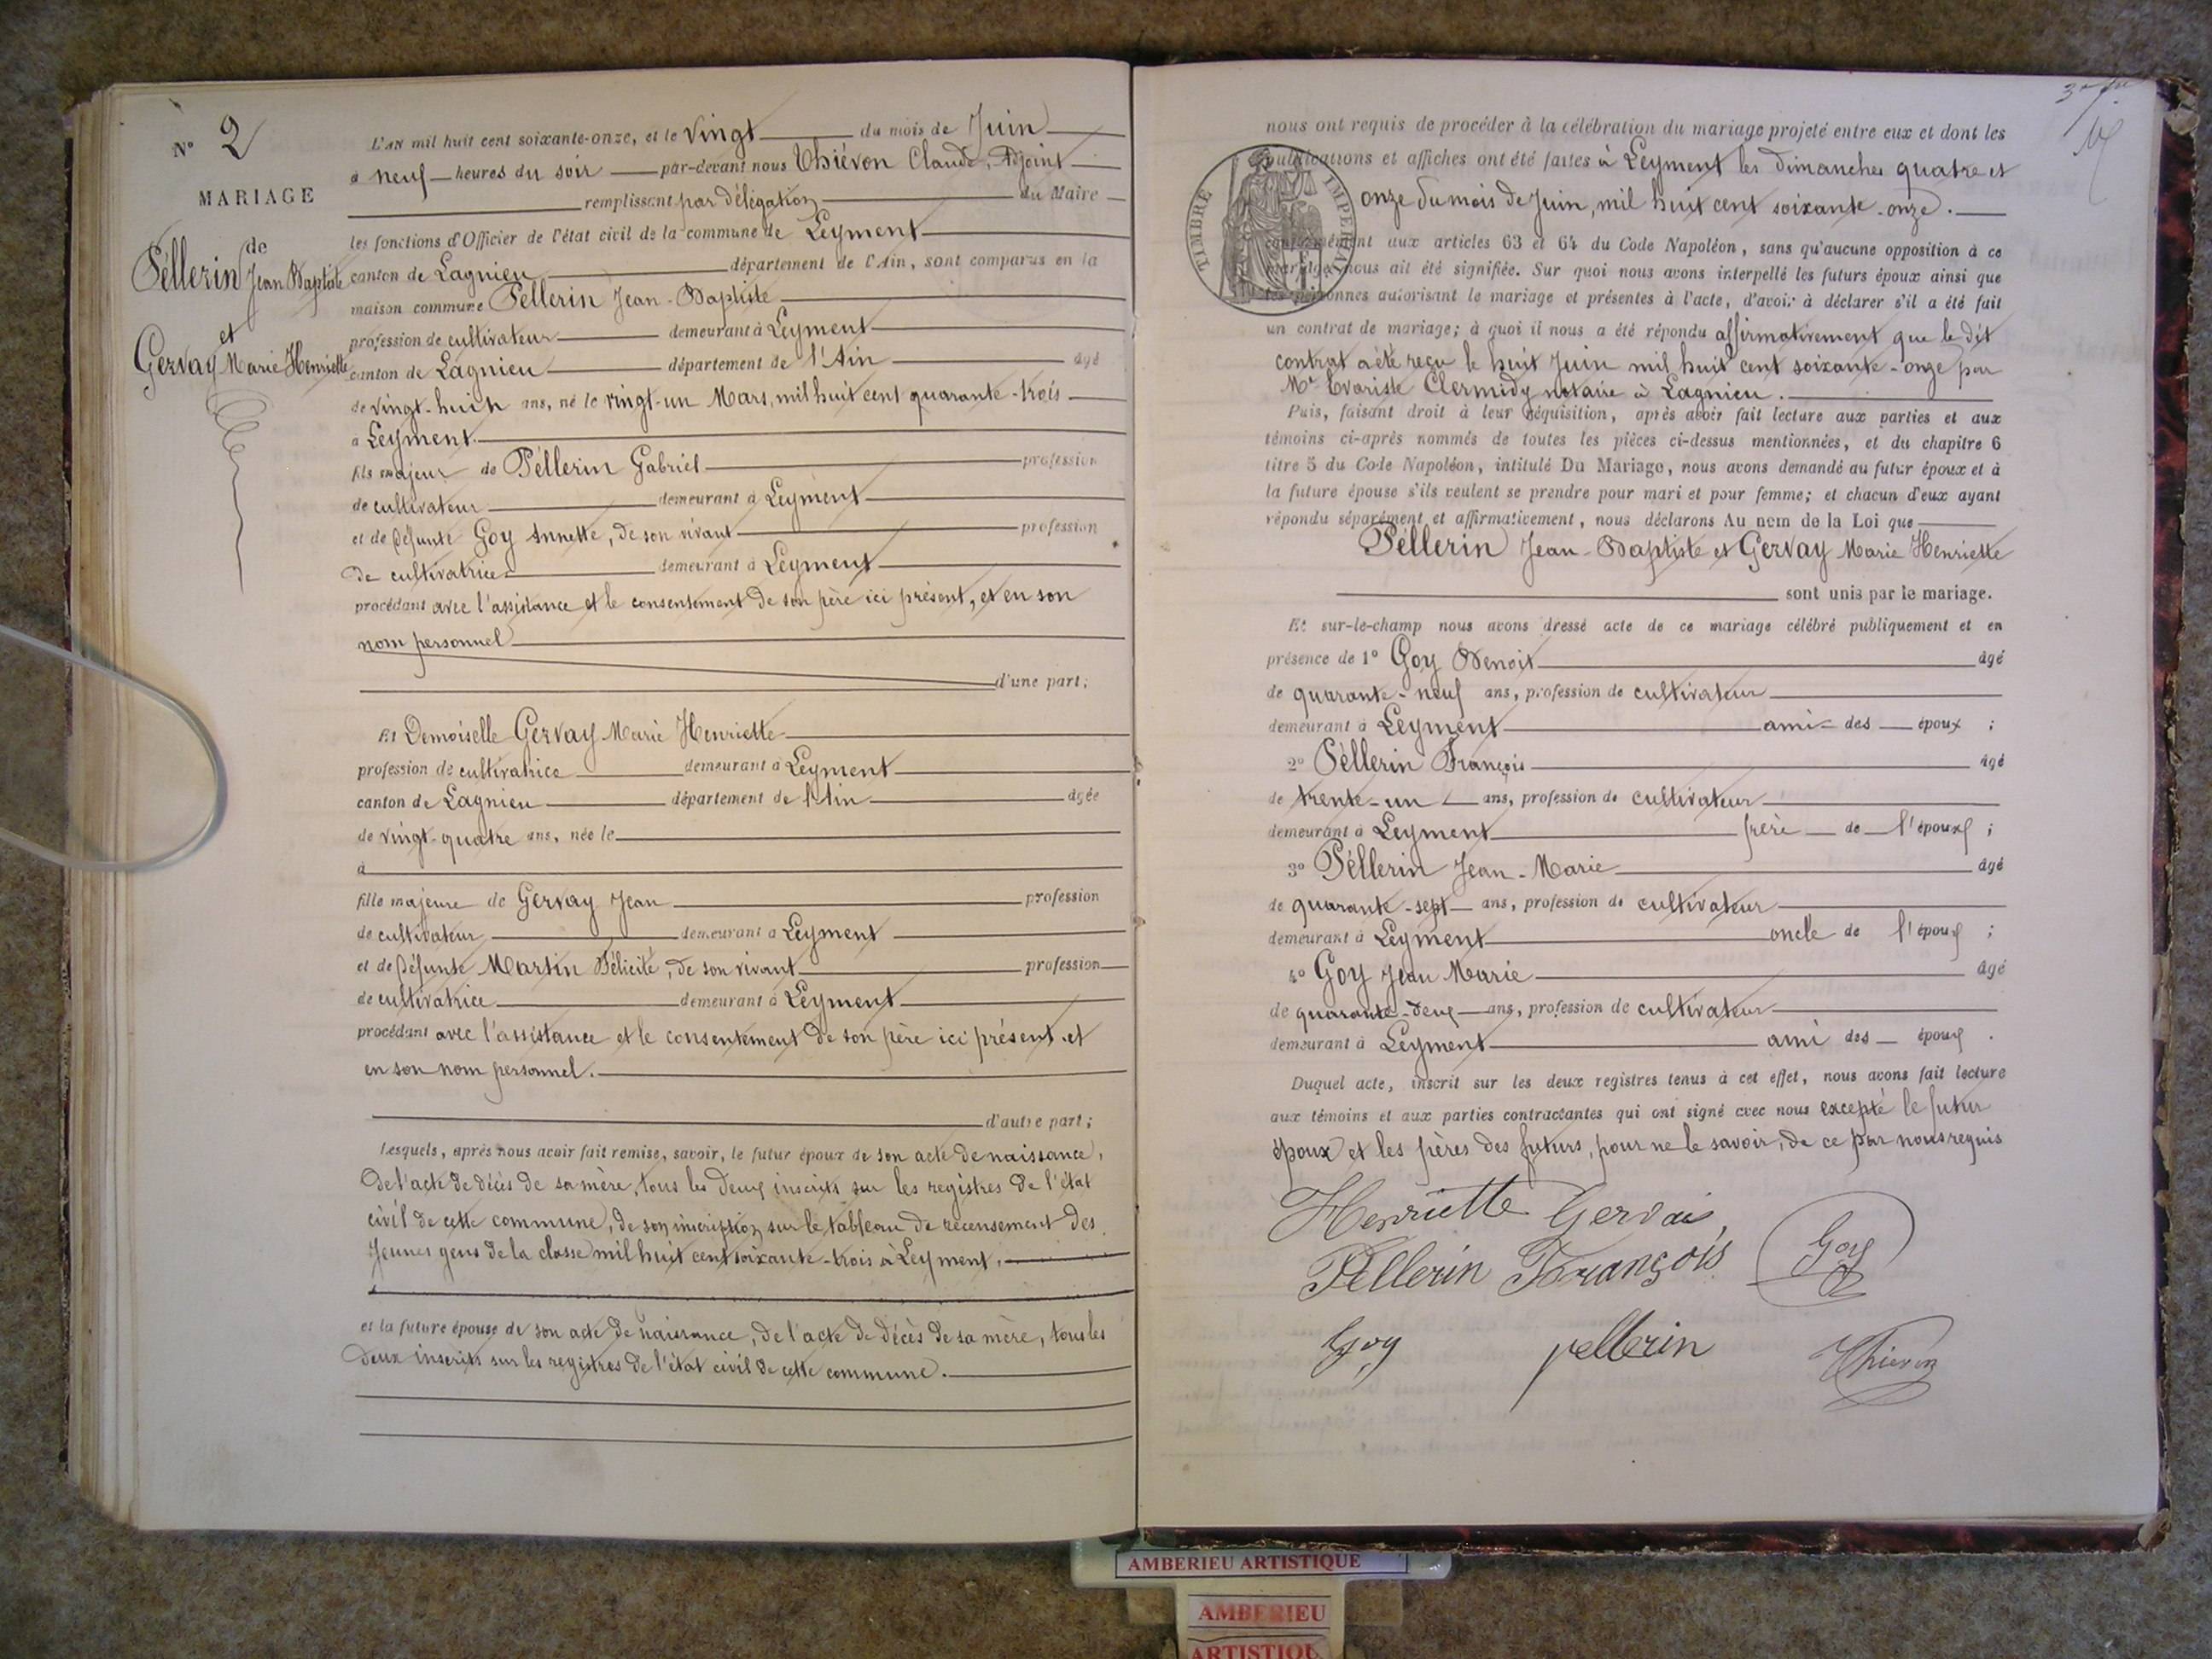 N° 2
MARIAGE
de
Péllerin Jean Baptiste
et
Gervay Marie Henriette
L'AN mil huit cent soixante-onze, et le vingt du mois de Juin
à neuf heures du soir par-devant nous Thiévon Claude, Adjoint
remplissant par délégation du Maire
les fonctions d'Officier de l'état civil de la commune de Leyment
canton de Lagnieu département de l'Ain, sont comparus en la
maison commune Péllerin Jean-Baptiste
profession de cultivateur demeurant à Leyment
canton de Lagnieu département de l'Ain âgé
de vingt-huit ans, né le vingt-un Mars, mil huit cent quarante-trois
à Leyment.
fils majeur de Péllerin Gabriel profession
de cultivateur demeurant à Leyment
et de défunte Goy Annette, de son vivant profession
de cultivatrice demeurant à Leyment
procédant avec l'assistance et le consentement de son père ici présent, et en son
nom personnel
d'une part;
Et Demoiselle Gervay Marie Henriette
profession de cultivatrice demeurant à Leyment
canton de Lagnieu département de l'Ain âgée
de vingt-quatre ans, née le
à
fille majeure de Gervay Jean profession
de cultivateur demeurant à Leyment
et de défunte Martin Félicité, de son vivant profession
de cultivatrice demeurant à Leyment
procédant avec l'assistance et le consentement de son père ici présent et
en son nom personnel.
d'autre part;
Lesquels, après nous avoir fait remise, savoir, le futur époux de son acte de naissance,
de l'acte de décès de sa mère, tous les deux inscrits sur les registres de l'état
civil de cette commune, de son inscription sur le tableau de recensement des
Jeunes gens de la classe mil huit cent soixante-trois à Leyment.
et la future épouse de son acte de naissance, de l'acte de décès de sa mère, tous les
deux inscrits sur les registres de l'état civil de cette commune.
nous ont requis de procéder à la célébration du mariage projeté entre eux et dont les
publications et affiches ont été faites à Leyment les dimanches quatre et
onze du mois de Juin, mil huit cent soixante-onze.
TIMBRE IMPERIAL
conformément aux articles 63 et 64 du Code Napoléon, sans qu'aucune opposition à ce
mariage nous ait été signifiée. Sur quoi nous avons interpellé les futurs époux ainsi que
les personnes autorisant le mariage et présentes à l'acte, d'avoir à déclarer s'il a été fait
un contrat de mariage; à quoi il nous a été répondu affirmativement que le dit
contrat a été reçu le huit Juin mil huit cent soixante-onze par
Me Evariste Clermidy notaire à Lagnieu.
Puis, faisant droit à leur réquisition, après avoir fait lecture aux parties et aux
témoins ci-après nommés de toutes les pièces ci-dessus mentionnées, et du chapitre 6
titre 5 du Code Napoléon, intitulé Du Mariage, nous avons demandé au futur époux et à
la future épouse s'ils veulent se prendre pour mari et pour femme; et chacun d'eux ayant
répondu séparément et affirmativement, nous déclarons Au nom de la Loi que
Péllerin Jean-Baptiste et Gervay Marie Henriette
sont unis par le mariage.
Et sur-le-champ nous avons dressé acte de ce mariage célébré publiquement et en
présence de 1° Goy Benoit âgé
de quarante-neuf ans, profession de cultivateur
demeurant à Leyment ami des époux ;
2° Péllerin François âgé
de trente-un ans, profession de cultivateur
demeurant à Leyment frère de l'époux ;
3° Péllerin Jean-Marie âgé
de quarante-sept ans, profession de cultivateur
demeurant à Leyment oncle de l'époux ;
4° Goy Jean Marie âgé
de quarante-deux ans, profession de cultivateur
demeurant à Leyment ami des époux .
Duquel acte, inscrit sur les deux registres tenus à cet effet, nous avons fait lecture
aux témoins et aux parties contractantes qui ont signé avec nous excepté le futur
époux et les pères des futurs, pour ne le savoir, de ce par nous requis
Henriette Gervais,
Pellerin François Goy
Goy pellerin Thievon
AMBERIEU ARTISTIQUE
AMBERIEU
ARTISTIQU